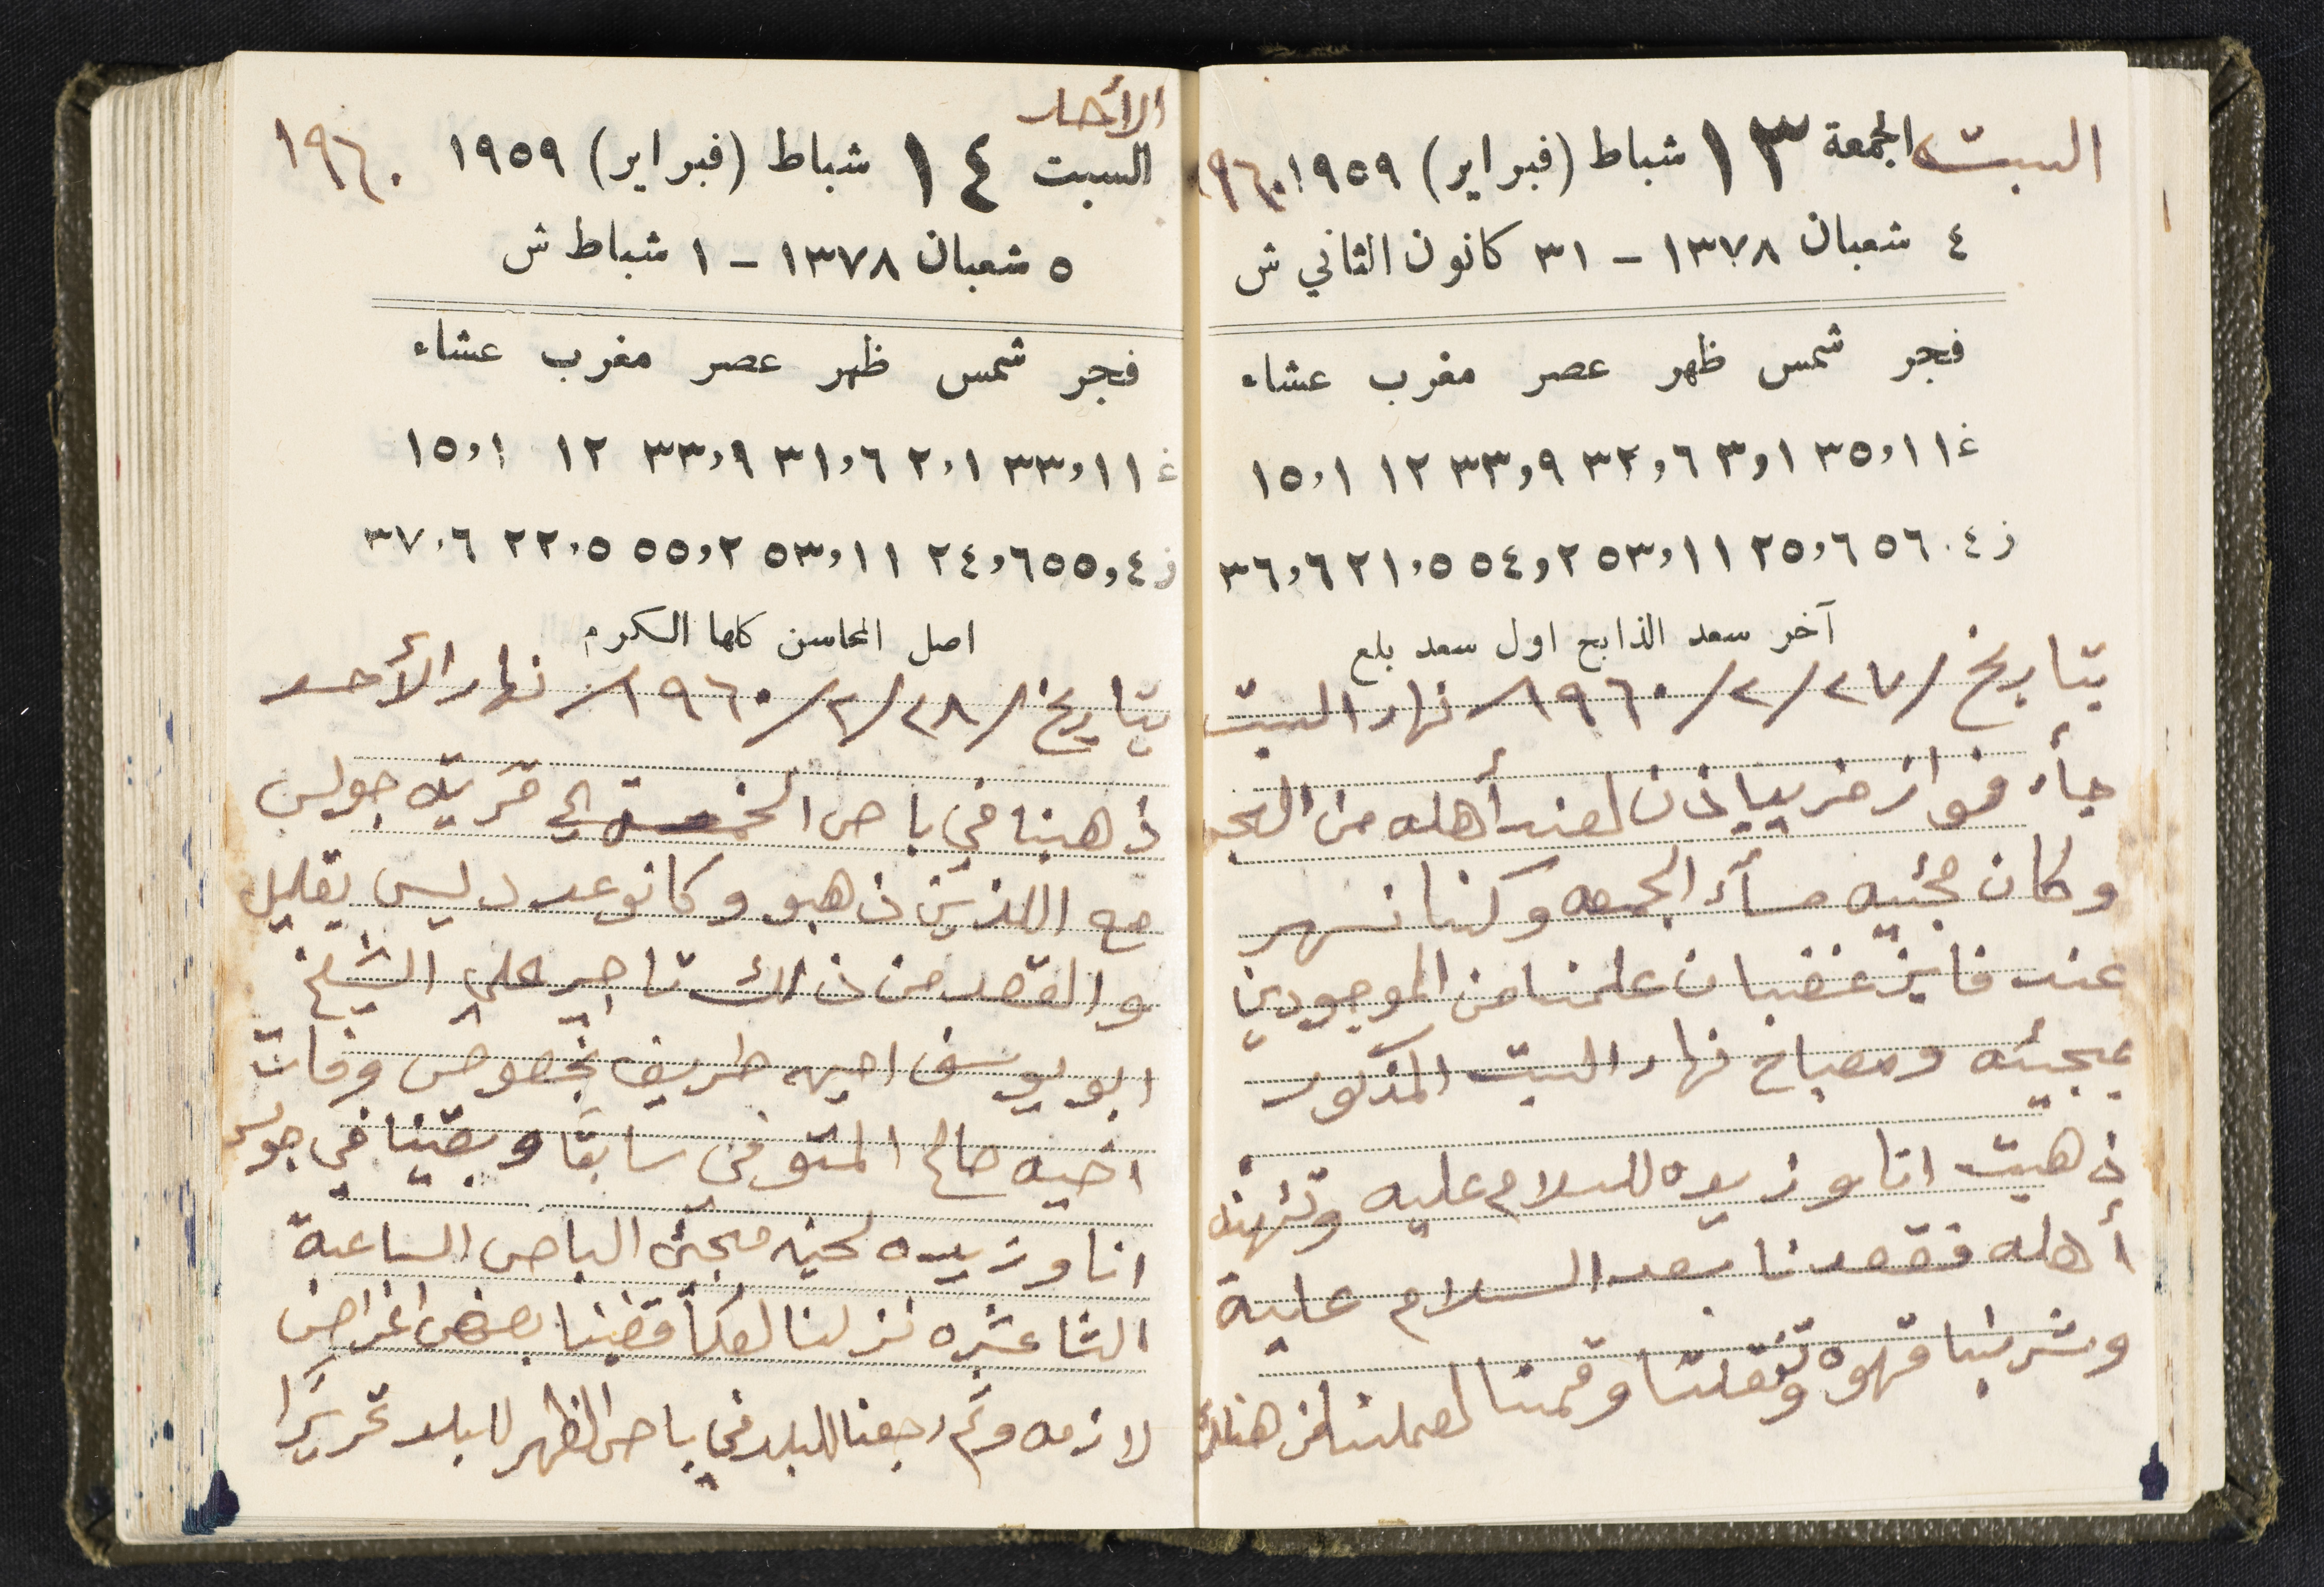 السبت الجمعة ١٣ شباط (فبراير) ١٩٥٩ ١٩٦٠
٤ شعبان ١٣٧٨ – ٣١ كانون الثاني ش
فجر شمس ظهر عصر مغرب عشاء
غ ٣٥,١١ ٣,١ ٣٢,٦ ٣٣,٩ ١٢ ١٥,١
ز ٥٦,٤ ٢٥,٦ ٥٣,١١ ٥٤,٢ ٢١,٥ ٣٦,٦
آخر سعد الذابح اول سعد بلع
بتاريخ /٢٧/٢/١٩٦٠ نهار السبت
جأ فواز خريبا لعند أهله من
وكان مجئيه مسأء الجمعه وكنا نسهر
عند فايز غضبان علمنا من الموجودين
بمجيئه وصباح نهار السبت المذكور
ذهبت انا وزيده للسلام عليه وتهنئة
أهله فقعدنا بعد السلام علية
وشربنا قهوه وقمنا لعملنا من هناك
الأحد
السبت ١٤ شباط (فبراير) ١٩٥٩ ١٩٦٠
٥ شعبان ١٣٧٨ – ١ شباط ش
فجر شمس ظهر عصر مغرب عشاء
غ ٣٣,١١ ٢,١ ٣١,٦ ٣٣,٩ ١٢ ١٥,١
ز ٥٥,٤ ٢٤,٦ ٥٣,١١ ٥٥,٢ ٢٢,٥ ٣٧,٦
اصل المحاسن كلها الكرم
بتاريخ /٢٨/٢/١٩٦٠ نهار الأحد
ذهبنا في باص الخمسة الى قرية جولس
مع اللذين ذهبو وكانو عدد ليس بقليل
والقصد من ذلك تاجير على الشيخ
ابو يوسف طريف بخصوص وفات
اخيه صالح المتوفى سابقًا وبقينا في جولس
انا وزيده لحين مجئ الباص الساعة
الثا عشره نزلنا لعكا قضينا بعض اغراض
لازمه وثم رجعنا للبلد في باص الظهر للبلد تحريرًا